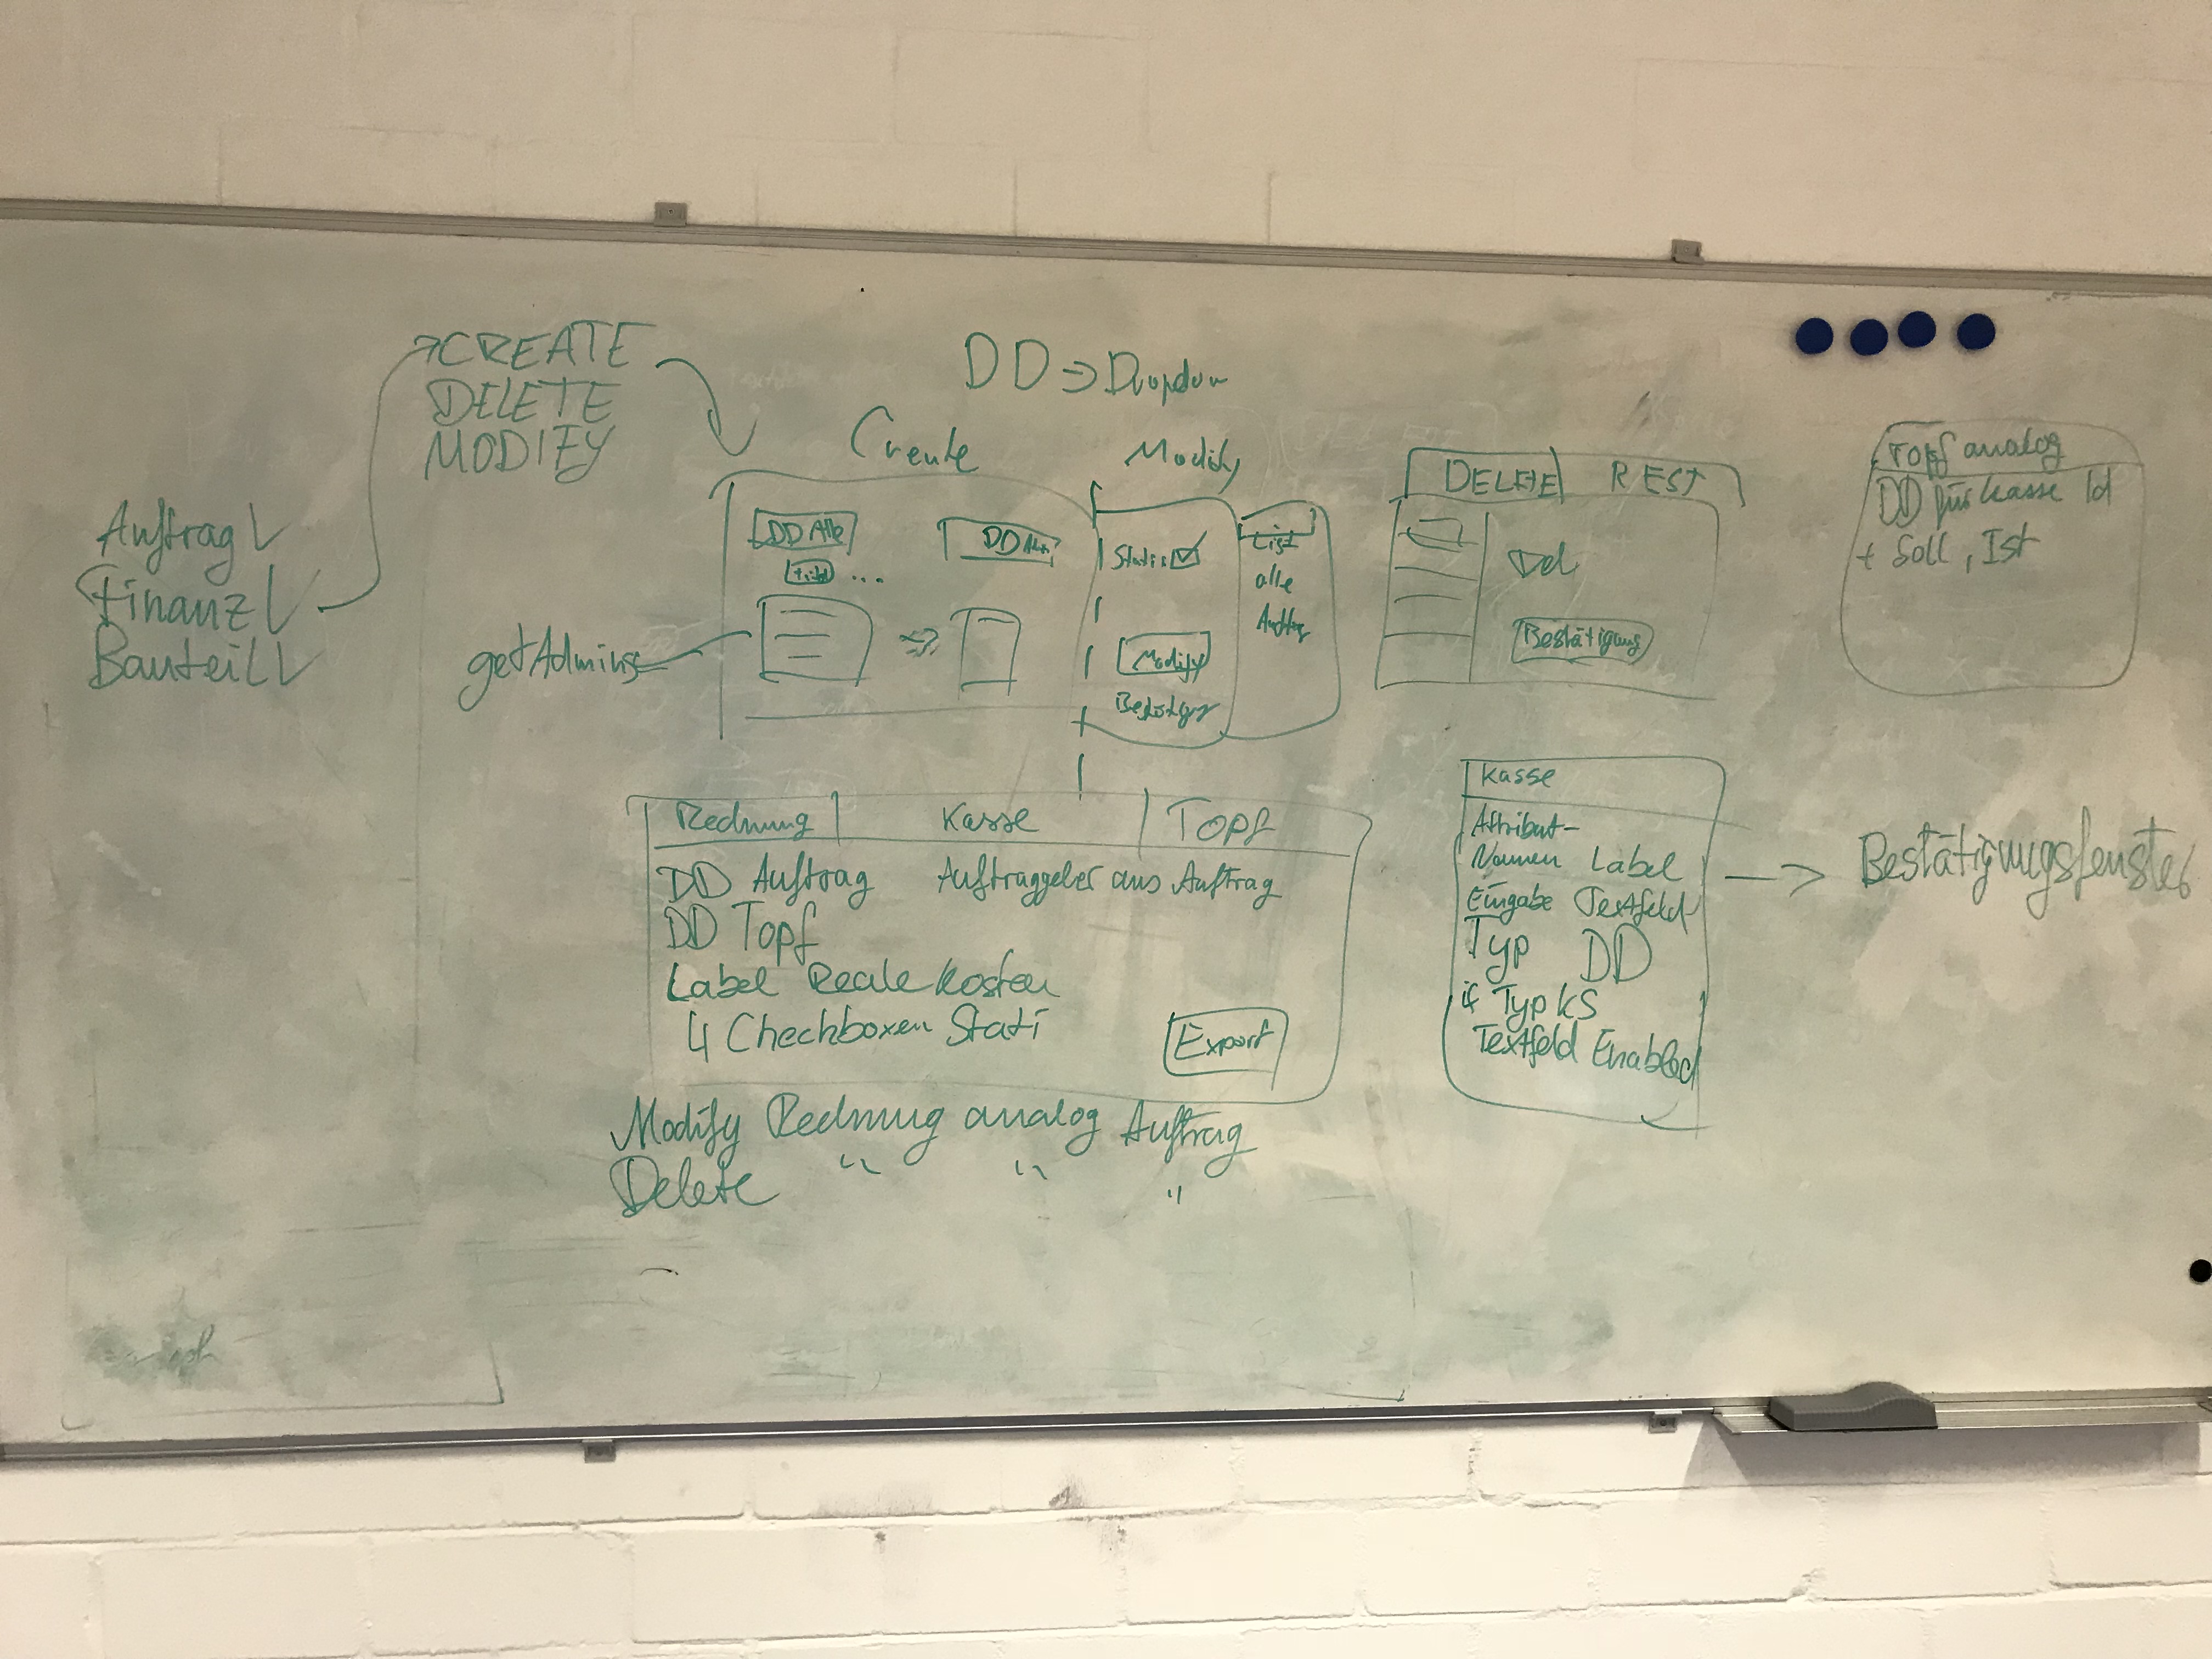 CREATE
DELETE
MODIFY
DD => Dropdown
Create
Modify
Auftrag
Finanz
Bauteil
getAdmins
DD Alle
DD
...
Stati
Modify
List
alle
Aufträg
DELETE REST
Dd
Bestätigung
Topf analog
DD für Kasse Id
+ Soll, Ist
Rechnung Kasse Topf
DD Auftrag Auftraggeber aus Auftrag
DD Topf
Label Reale Kosten
4 Checkboxen Stati
Export
Modify Rechnung analog Auftrag
Delete " " "
Kasse
Attribut-
Namen Label
Eingabe Textfeld
Typ DD
if Typ KS
Textfeld Enabled
Bestätigungsfenster